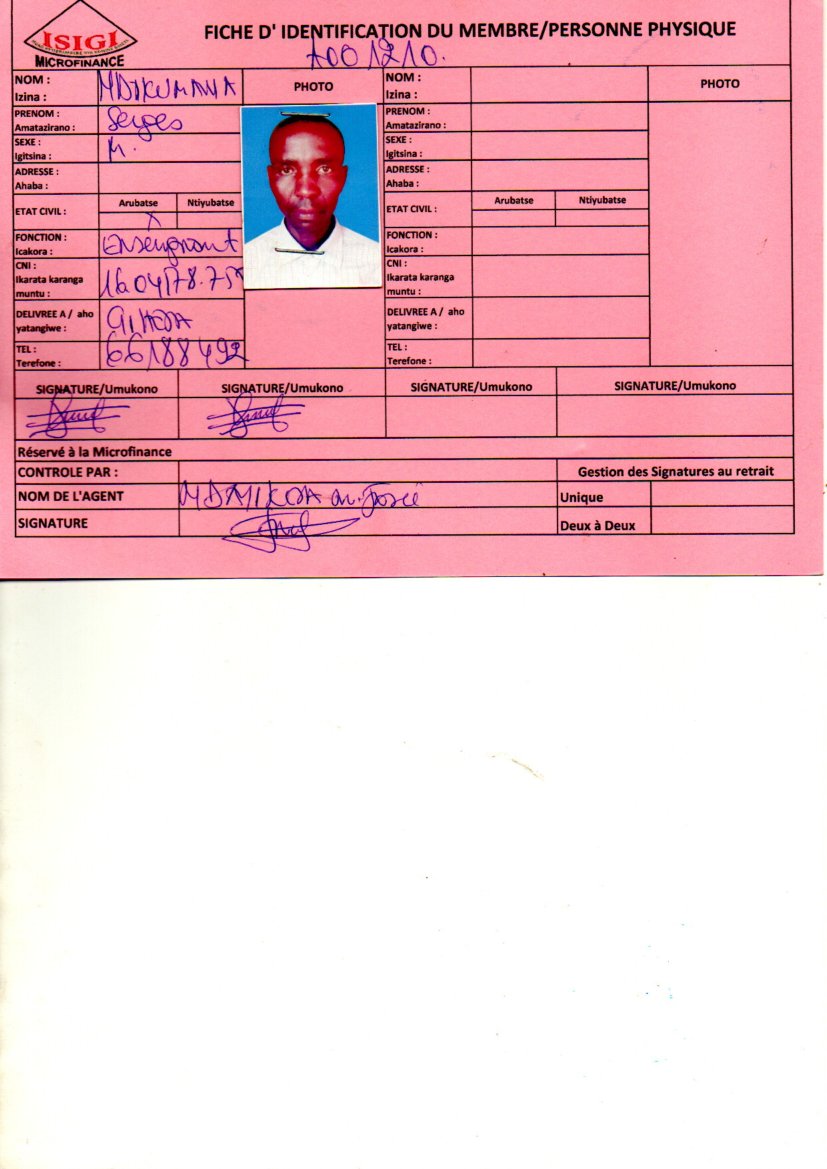 ISIGI
MICROFINANCE
FICHE D' IDENTIFICATION DU MEMBRE/PERSONNE PHYSIQUE
A001210.
NOM :
Izina :
NDIKUMANA
PHOTO
PRENOM :
Amatazirano :
Serges
SEXE :
Igitsina :
M.
ADRESSE :
Ahaba :
ETAT CIVIL :
Arubatse
Ntiyubatse
X
FONCTION :
Icakora :
Enseignant
CNI :
Ikarata karanga
muntu :
DELIVREE A / aho
yatangiwe :
TEL :
Terefone :
66188492
NOM :
Izina :
PHOTO
PRENOM :
Amatazirano :
SEXE :
Igitsina :
ADRESSE :
Ahaba :
ETAT CIVIL :
Arubatse
Ntiyubatse
FONCTION :
Icakora :
CNI :
Ikarata karanga
muntu :
DELIVREE A / aho
yatangiwe :
TEL :
Terefone :
SIGNATURE/Umukono
SIGNATURE/Umukono
SIGNATURE/Umukono
SIGNATURE/Umukono
Réservé à la Microfinance
CONTROLE PAR :
Gestion des Signatures au retrait
NOM DE L'AGENT
Unique
SIGNATURE
Deux à Deux